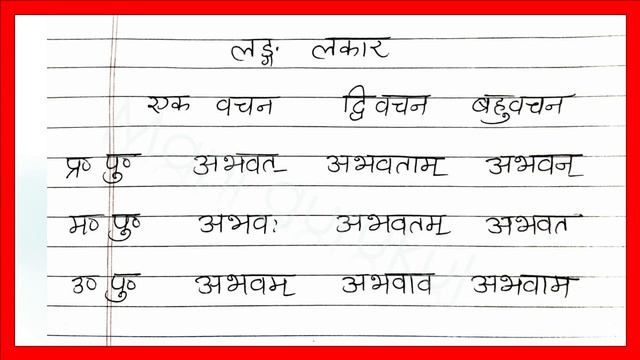 लङ्ग लकार
एक वचन द्विवचन बहुवचन
प्र० पु० अभवत् अभवताम् अभवन्
म० पु० अभवः अभवतम् अभवत
उ० पु० अभवम् अभवाव अभवाम